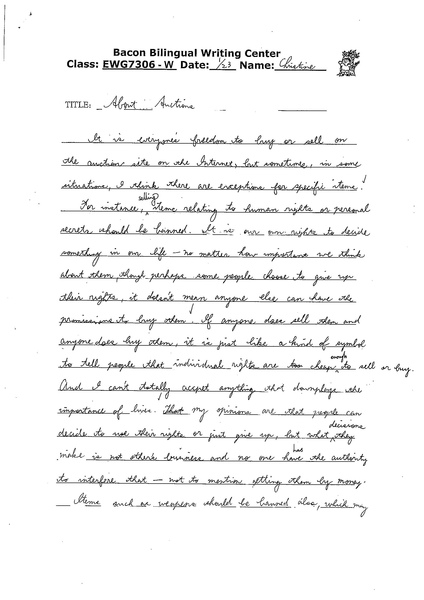 Bacon Bilingual Writing Center
Class: EWG7306 - W Date: 1/23 Name: Christine
TITLE: About Auctions
It is everyone's freedom to buy or sell on
the auction site on the Internet, but sometimes, in some
situations, I think there are exceptions for specific items.
selling
For instance, items relating to human rights or personal
secrets should be banned. It is our own rights to decide
something in our life – no matter how important we think
about them, though perhaps some people choose to give up
their rights, it doesn't mean anyone else can have the
permissions to buy them. If anyone does sell them and
anyone does buy them, it is just like a kind of symbol
enough
to tell people that individual rights are too cheap to sell or buy.
And I can't totally accpet anything that downplays the
importance of lives. That my opinions are that people can
decisions
decide to use their rights or just give up, but what they
has
make is not other's business and no one have the authority
to interfere that – not to mention getting them by money.
Items such as weapons should be banned also, which may